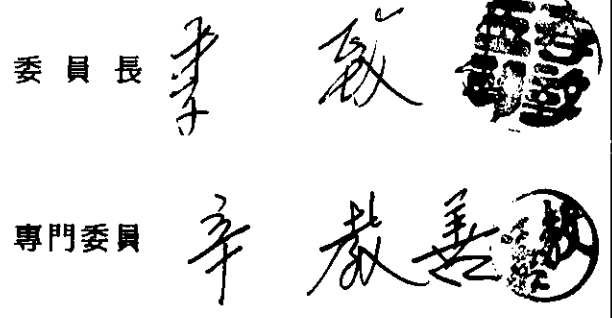 委員長 李
專門委員 辛 敎善